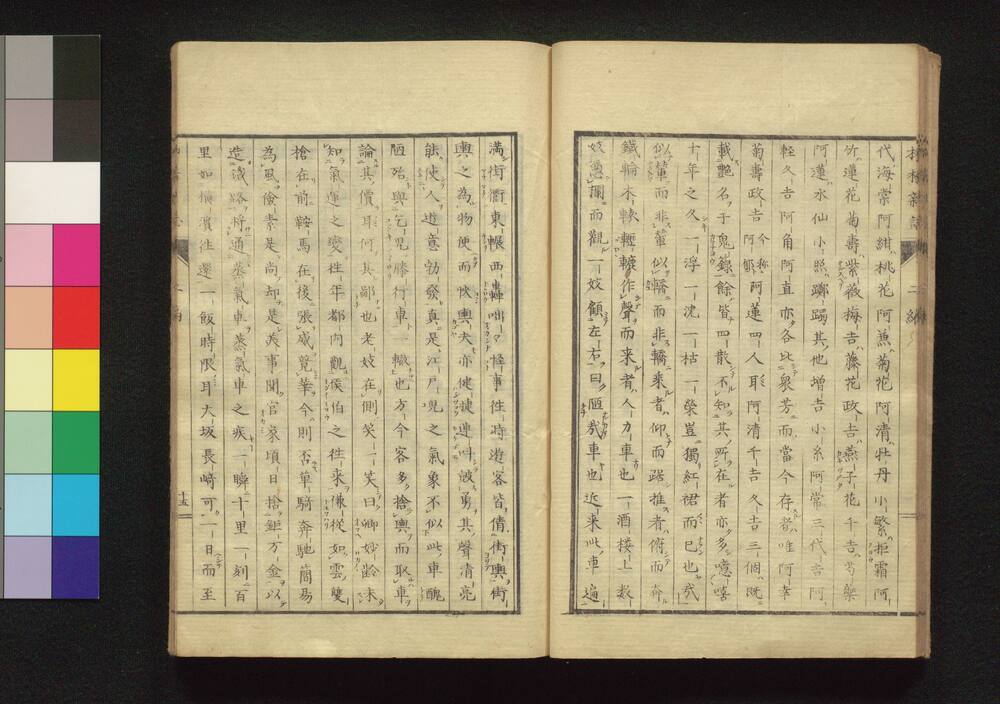 代海棠阿紺桃花阿薫菊花阿清牡丹小繁拒霜阿
竹蓮花菊壽紫薇梅吉藤花政吉燕子花千吉芍藥
阿蓮水仙小照躑躅其他增吉小糸阿常三代吉阿
輕久吉阿角阿直亦各比衆芳而當今存者唯阿幸
菊壽政吉今称阿蓮四人耳阿清千吉久吉三個既
載艷名于鬼錄餘皆四散不知其所在者亦多噫嘻
十年之久一浮一沈一枯一榮豈獨紅裙而已也哉
似輦而非輦似轎而非轎乘者仰而踞推者俯而奔
鐵輪木轅轣轆作聲而来者人力車也一酒楼上数
妓憑闌而觀一妓顧左右曰陋哉車也近来此車遍
滿街衢東輾西轟咄々怪事徃時遊客皆倩街輿街
輿之為物便而快輿夫亦健捷連呌皷勇其聲清亮
能使人遊意勃發真是江戸兒之氣象不似此車醜
陋殆與乞兒膝行車一轍也方今客多捨輿而取車
論其價耳何其鄙也老妓在側笑一笑曰卿妙齡未
知氣運之變徃年都内觀侯伯之徃来傔從如雲雙
槍在前鞍馬在後張威競華今則否單騎奔馳簡易
為風儉素是尚却是美事聞官家頃日捨鉅万金以
造鐵路将通蒸氣車蒸氣車之疾一瞬十里一刻百
里如橫濱徃還一飯時限耳大坂長﨑可一日而至
十五